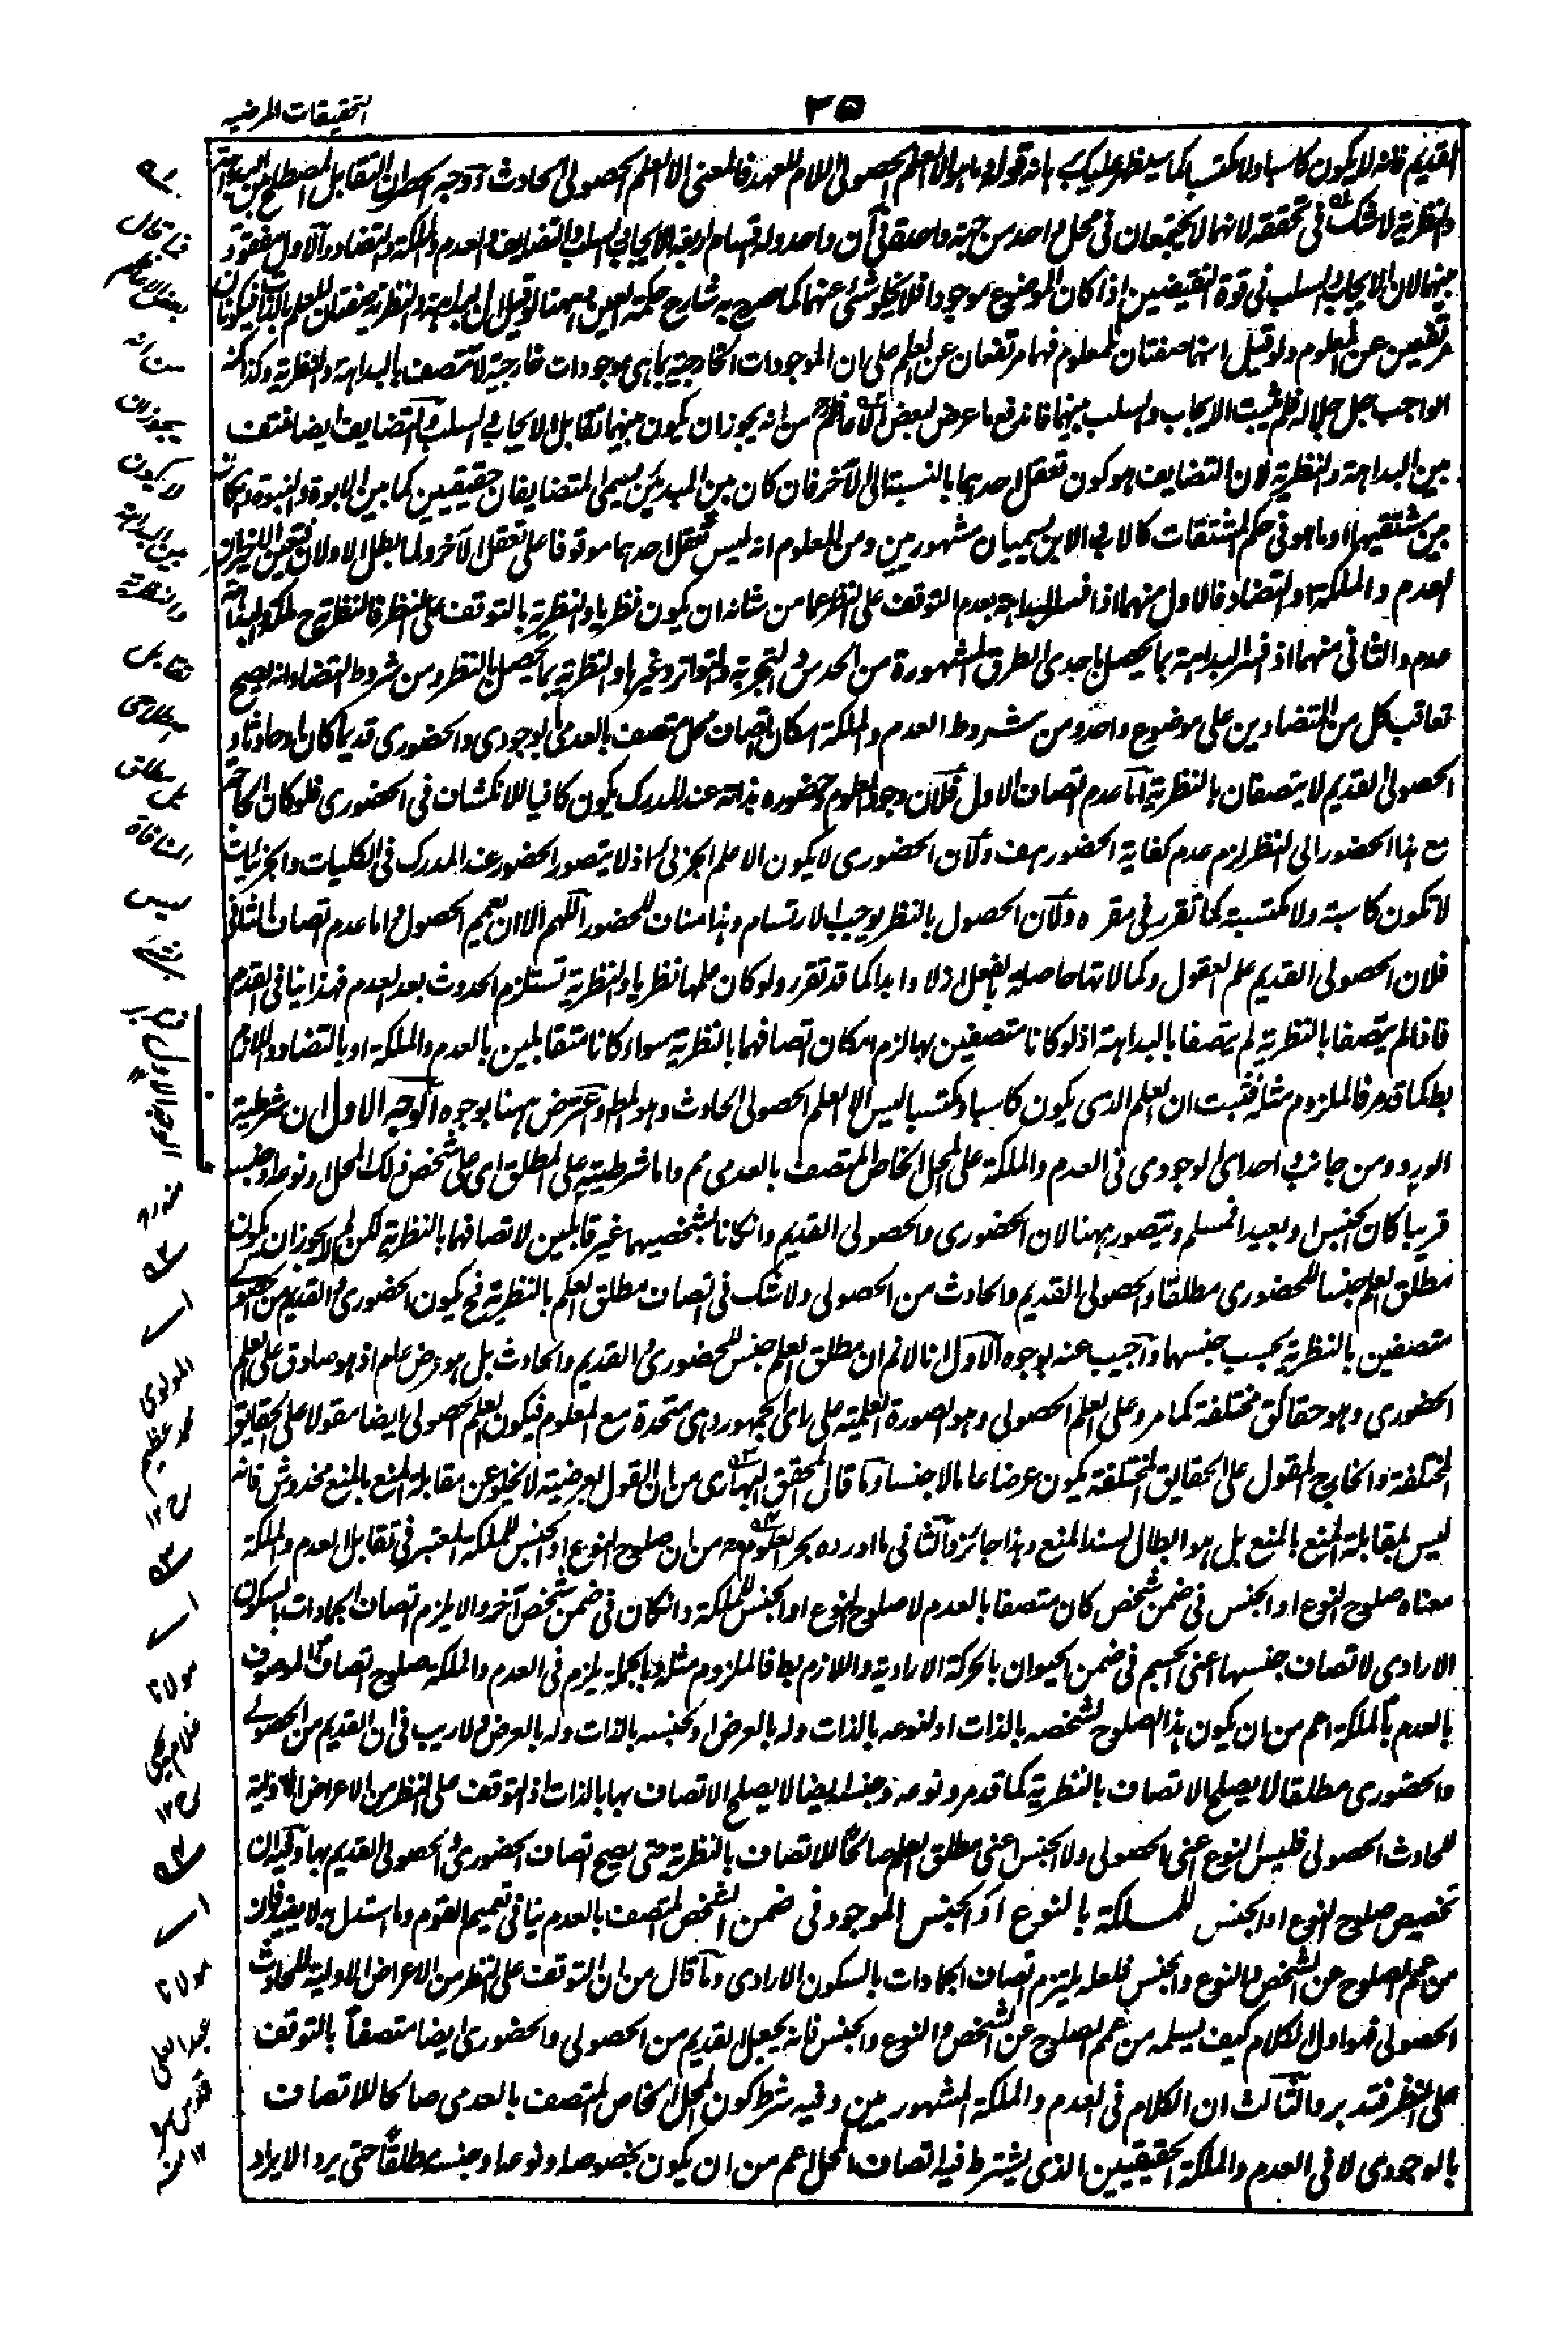 التحقيقات المرضيه
٣٥
القديم فانه لا يكون كاسبا ولا مكتسبا كما سيظهر عليك بانه قوله وما هو الا العلم الحصولي اللام للعهد فالمعنى الا العلم الحصولي الحادث ووجه الحصر ان التقابل المصطلح بين البداهة
والنظرية لا شك فى تحققه لانهما لا يجتمعان فى محل واحد من جهة واحدة فى آن واحد وله اقسام اربعة الايجاب والسلب والتضايف والعدم والملكة والتضاد والاول مفقود
بينهما لان الايجاب والسلب فى قوة النقيضين اذا كان الموضوع موجودا فلا يخلو شئ عنهما كما صرح به شارح حكمة العين وههنا لو قيل ان البداهة والنظرية صفتان للعلم بالذات فيكونان
مرتفعين عن المعلوم ولو قيل انهما صفتان للمعلوم فهما مرتفعان عن العلم على ان الموجودات الخارجية بما هى موجودات خارجية لا تتصف بالبداهة والنظرية وكذا كنه
الواجب جل جلاله فلم يثبت الايجاب والسلب بينهما فاندفع ما عرض لبعض الاعاظم من انه يجوز ان يكون بينهما تقابل الايجاب والسلب والتضايف ايضا منتف
بين البداهة والنظرية لان التضايف هو كون تعقل احدهما بالنسبة الى الآخر فان كان بين المبدئين يسمى المتضايفان حقيقيين كما بين الابوة والبنوة وان كان
بين مشتقيهما او ما هو فى حكم المشتقات كالاب والابن يسميان مشهورين ومن المعلوم انه ليس تعقل احدهما موقوفا على تعقل الآخر ولما بطل الاولان فتعين الاخيران
العدم والملكة والتضاد فالاول منهما اذا فسر البداهة بعدم التوقف على النظر عما من شانه ان يكون نظريا والنظرية بالتوقف على النظر فالنظرية ح ملكة والبداهة
عدم والثانى منهما اذ فسر البداهة بما يحصل باحدى الطرق المشهورة من الحدس والتجربة والتواتر وغيرها والنظرية بما يحصل بالنظر ومن شروط التضاد انه يصح
تعاقب كل من المتضادين على موضوع واحد ومن شروط العدم والملكة امكان اتصاف محل متصف بالعدمى بالوجودى والحضورى قديما كان او حادثا و
الحصولى القديم لا يتصفان بالنظرية اما عدم اتصاف الاول فلان وجود المعلوم وحضوره بذاته عند المدرك يكون كافيا للانكشاف فى الحضورى فلو كان الحاجة
مع هذا الحضور الى النظر لزم عدم كفاية الحضور هف ولان الحضورى لا يكون الا علم الجزئى اذ لا يتصور الحضور عند المدرك فى الكليات والجزئيات
لا تكون كاسبة ولا مكتسبة كما تقرر فى مقره ولان الحصول بالنظر يوجب الارتسام وهذا مناف للحضور اللهم الا ان يعمم الحصول واما عدم اتصاف الثانى
فلان الحصولى القديم علم العقول وكمالاتها حاصلة بالفعل ازلا وابدا كما قد تقرر ولو كان علمها نظريا والنظرية تستلزم الحدوث بعد العدم فهذا ينافى القدم
فاذا لم يتصفا بالنظرية لم يتصفا بالبداهة اذ لو كانا متصفين بها لزم امكان اتصافهما بالنظرية سواء كانا متقابلين بالعدم والملكة او بالتضاد واللازم
بط كما قد مر فالملزوم مثله فثبت ان العلم الذى يكون كاسبا ومكتسبا ليس الا العلم الحصولى الحادث وهو المط واعترض ههنا بوجوه الوجه الاول ان شرطية
الورود من جانب واحد اى الوجودى فى العدم والملكة على المحل الخاص المتصف بالعدمى مم واما شرطيته على المطلق اى على شخص ذلك المحل او نوعه او جنسه
قريبا كان الجنس او بعيدا فمسلم ويتصور ههنا لان الحضورى والحصولى القديم وان كانا بشخصيهما غير قابلين لاتصافهما بالنظرية لكن لم لا يجوز ان يكون
مطلق العلم جنسا للحضورى مطلقا والحصولى القديم والحادث من الحصولى ولا شك فى اتصاف مطلق العلم بالنظرية فح يكون الحضورى والقديم من الحصولى
متصفين بالنظرية بحسب جنسهما واجيب عنه بوجوه الاول انا لا نم ان مطلق العلم جنس للحضورى والقديم والحادث بل هو عرض عام اذ هو صادق على العلم
الحضورى وهو حقائق مختلفة كما مر وعلى العلم الحصولى وهو الصورة العلمية على راى الجمهور وهى متحدة مع المعلوم فيكون العلم الحصولى ايضا مقولا على الحقايق
المختلفة والخارج المقول على الحقايق المختلفة يكون عرضا عاما لا جنسا وما قال المحقق البهارى من ان القول بعرضيته لا يخلو عن مقابلة المنع بالمنع مخدوش فانه
ليس بمقابلة المنع بالمنع بل هو ابطال لسند المنع وهذا جائز والثانى ما اورده بحر العلوم من ان صلوح النوع او الجنس للملكة المعتبر فى تقابل العدم والملكة
معناه صلوح النوع او الجنس فى ضمن شخص كان متصفا بالعدم لا صلوح النوع او الجنس للملكة وان كان فى ضمن شخص آخر والا يلزم اتصاف الجمادات بالسكون
الارادى لاتصاف جنسها اعنى الجسم فى ضمن الحيوان بالحركة الارادية واللازم بط فالملزوم مثله وبالجملة يلزم فى العدم والملكة صلوح اتصاف الموصوف
بالعدم بالملكة اعم من ان يكون هذا الصلوح لشخصه بالذات او لنوعه بالذات وله بالعرض او لجنسه بالذات وله بالعرض ولا ريب فى ان القديم من الحصولى
والحضورى مطلقا لا يصلح الاتصاف بالنظرية كما قد مر ونوعه وجنسه ايضا لا يصلح الاتصاف بها بالذات اذ التوقف على النظر من الاعراض الاولية
للحادث الحصولى فليس النوع اعنى الحصولى ولا الجنس اعنى مطلق العلم صالحا للاتصاف بالنظرية حتى يصح اتصاف الحضورى والحصولى القديم بها وفيه ان
تخصيص صلوح النوع او الجنس للملكة بالنوع او الجنس الموجود فى ضمن الشخص المتصف بالعدم ينافى تعميم القوم وما استدل به لا يفيد فان
من عمم الصلوح عن الشخص والنوع والجنس فلعله يلتزم اتصاف الجمادات بالسكون الارادى وما قال من ان التوقف على النظر من الاعراض الاولية للحادث
الحصولى فهو اول الكلام كيف يسلمه من عمم الصلوح عن الشخص والنوع والجنس فانه يجعل القديم من الحصولى والحضورى ايضا متصفا بالتوقف
على النظر فتدبر والثالث ان الكلام فى العدم والملكة المشهورين وفيه شرط كون المحل الخاص المتصف بالعدمى صالحا للاتصاف
بالوجودى لا فى العدم والملكة الحقيقيين الذى يشترط فيه اتصاف المحل اعم من ان يكون بخصوصه او نوعه او جنسه مطلقا حتى يرد الايراد
فما قال
بعض الاعاظم
من انه
يجوز ان
لا يكون
بين البداهة
والنظرية
تقابل
اصطلاحى
بل مطلق
المنافاة
ليس
بشئ
اى
المولوى
محمد عظيم
١٢
اى
مولانا
غلام يحيى
١٢
اى
مولانا
عبد العلى
قدس سره
١٢ منه